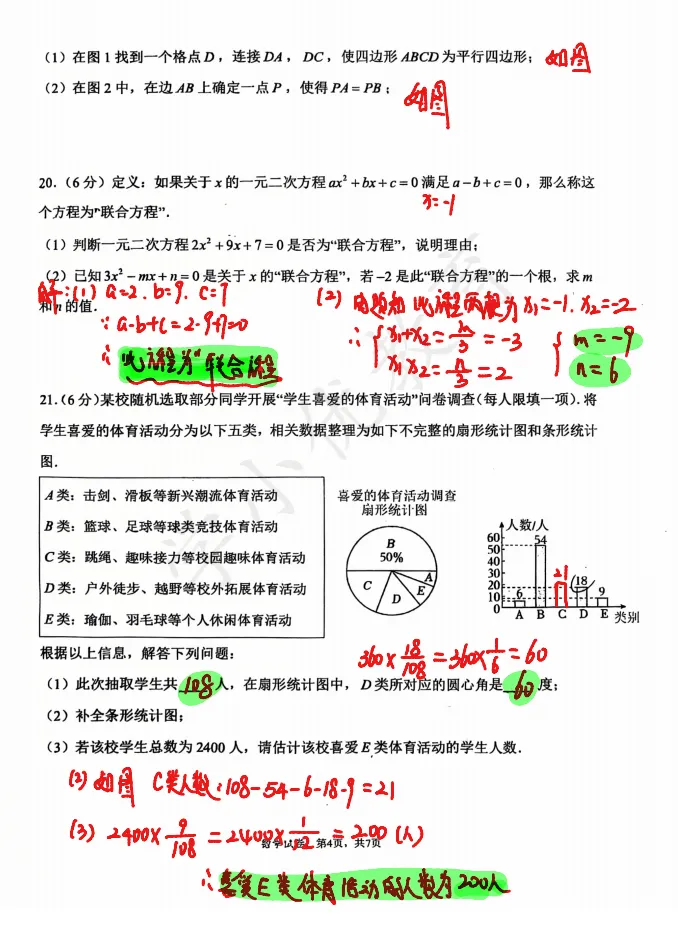 （1）在图1找到一个格点D，连接DA，DC，使四边形ABCD为平行四边形； 如图
（2）在图2中，在边AB上确定一点P，使得PA=PB； 如图
20.（6分）定义：如果关于x的一元二次方程ax²+bx+c=0满足a−b+c=0，那么称这
x=-1
个方程为“联合方程”.
（1）判断一元二次方程2x²+9x+7=0是否为“联合方程”，说明理由；
（2）已知3x²−mx+n=0是关于x的“联合方程”，若−2是此“联合方程”的一个根，求m
和n的值.
解：(1) a=2. b=9. c=7
∵ a-b+c=2-9+7=0
∴ 此方程为“联合方程
(2) 由题知 此方程两根为 x₁=-1. x₂=-2
∴ { x₁+x₂=m/3=-3
x₁x₂=n/3=2
{ m=-9
n=6
21.（6分）某校随机选取部分同学开展“学生喜爱的体育活动”问卷调查（每人限填一项）.将
学生喜爱的体育活动分为以下五类，相关数据整理为如下不完整的扇形统计图和条形统计
图.
A类：击剑、滑板等新兴潮流体育活动
B类：篮球、足球等球类竞技体育活动
C类：跳绳、趣味接力等校园趣味体育活动
D类：户外徒步、越野等校外拓展体育活动
E类：瑜伽、羽毛球等个人休闲体育活动
喜爱的体育活动调查
扇形统计图
B
50%
A
E
D
C
人数/人
60
50
40
30
20
10
0
6
54
21
18
9
A B C D E 类别
360×18/108=360×1/6=60
根据以上信息，解答下列问题：
（1）此次抽取学生共 108 人，在扇形统计图中，D类所对应的圆心角是 60 度；
（2）补全条形统计图；
（3）若该校学生总数为2400人，请估计该校喜爱E类体育活动的学生人数.
(2) 如图 C类人数：108-54-6-18-9=21
(3) 2400×9/108=2400×1/12=200（人）
数学试卷 第4页，共7页
∴ 喜爱E类体育活动的人数为200人
学小优教育